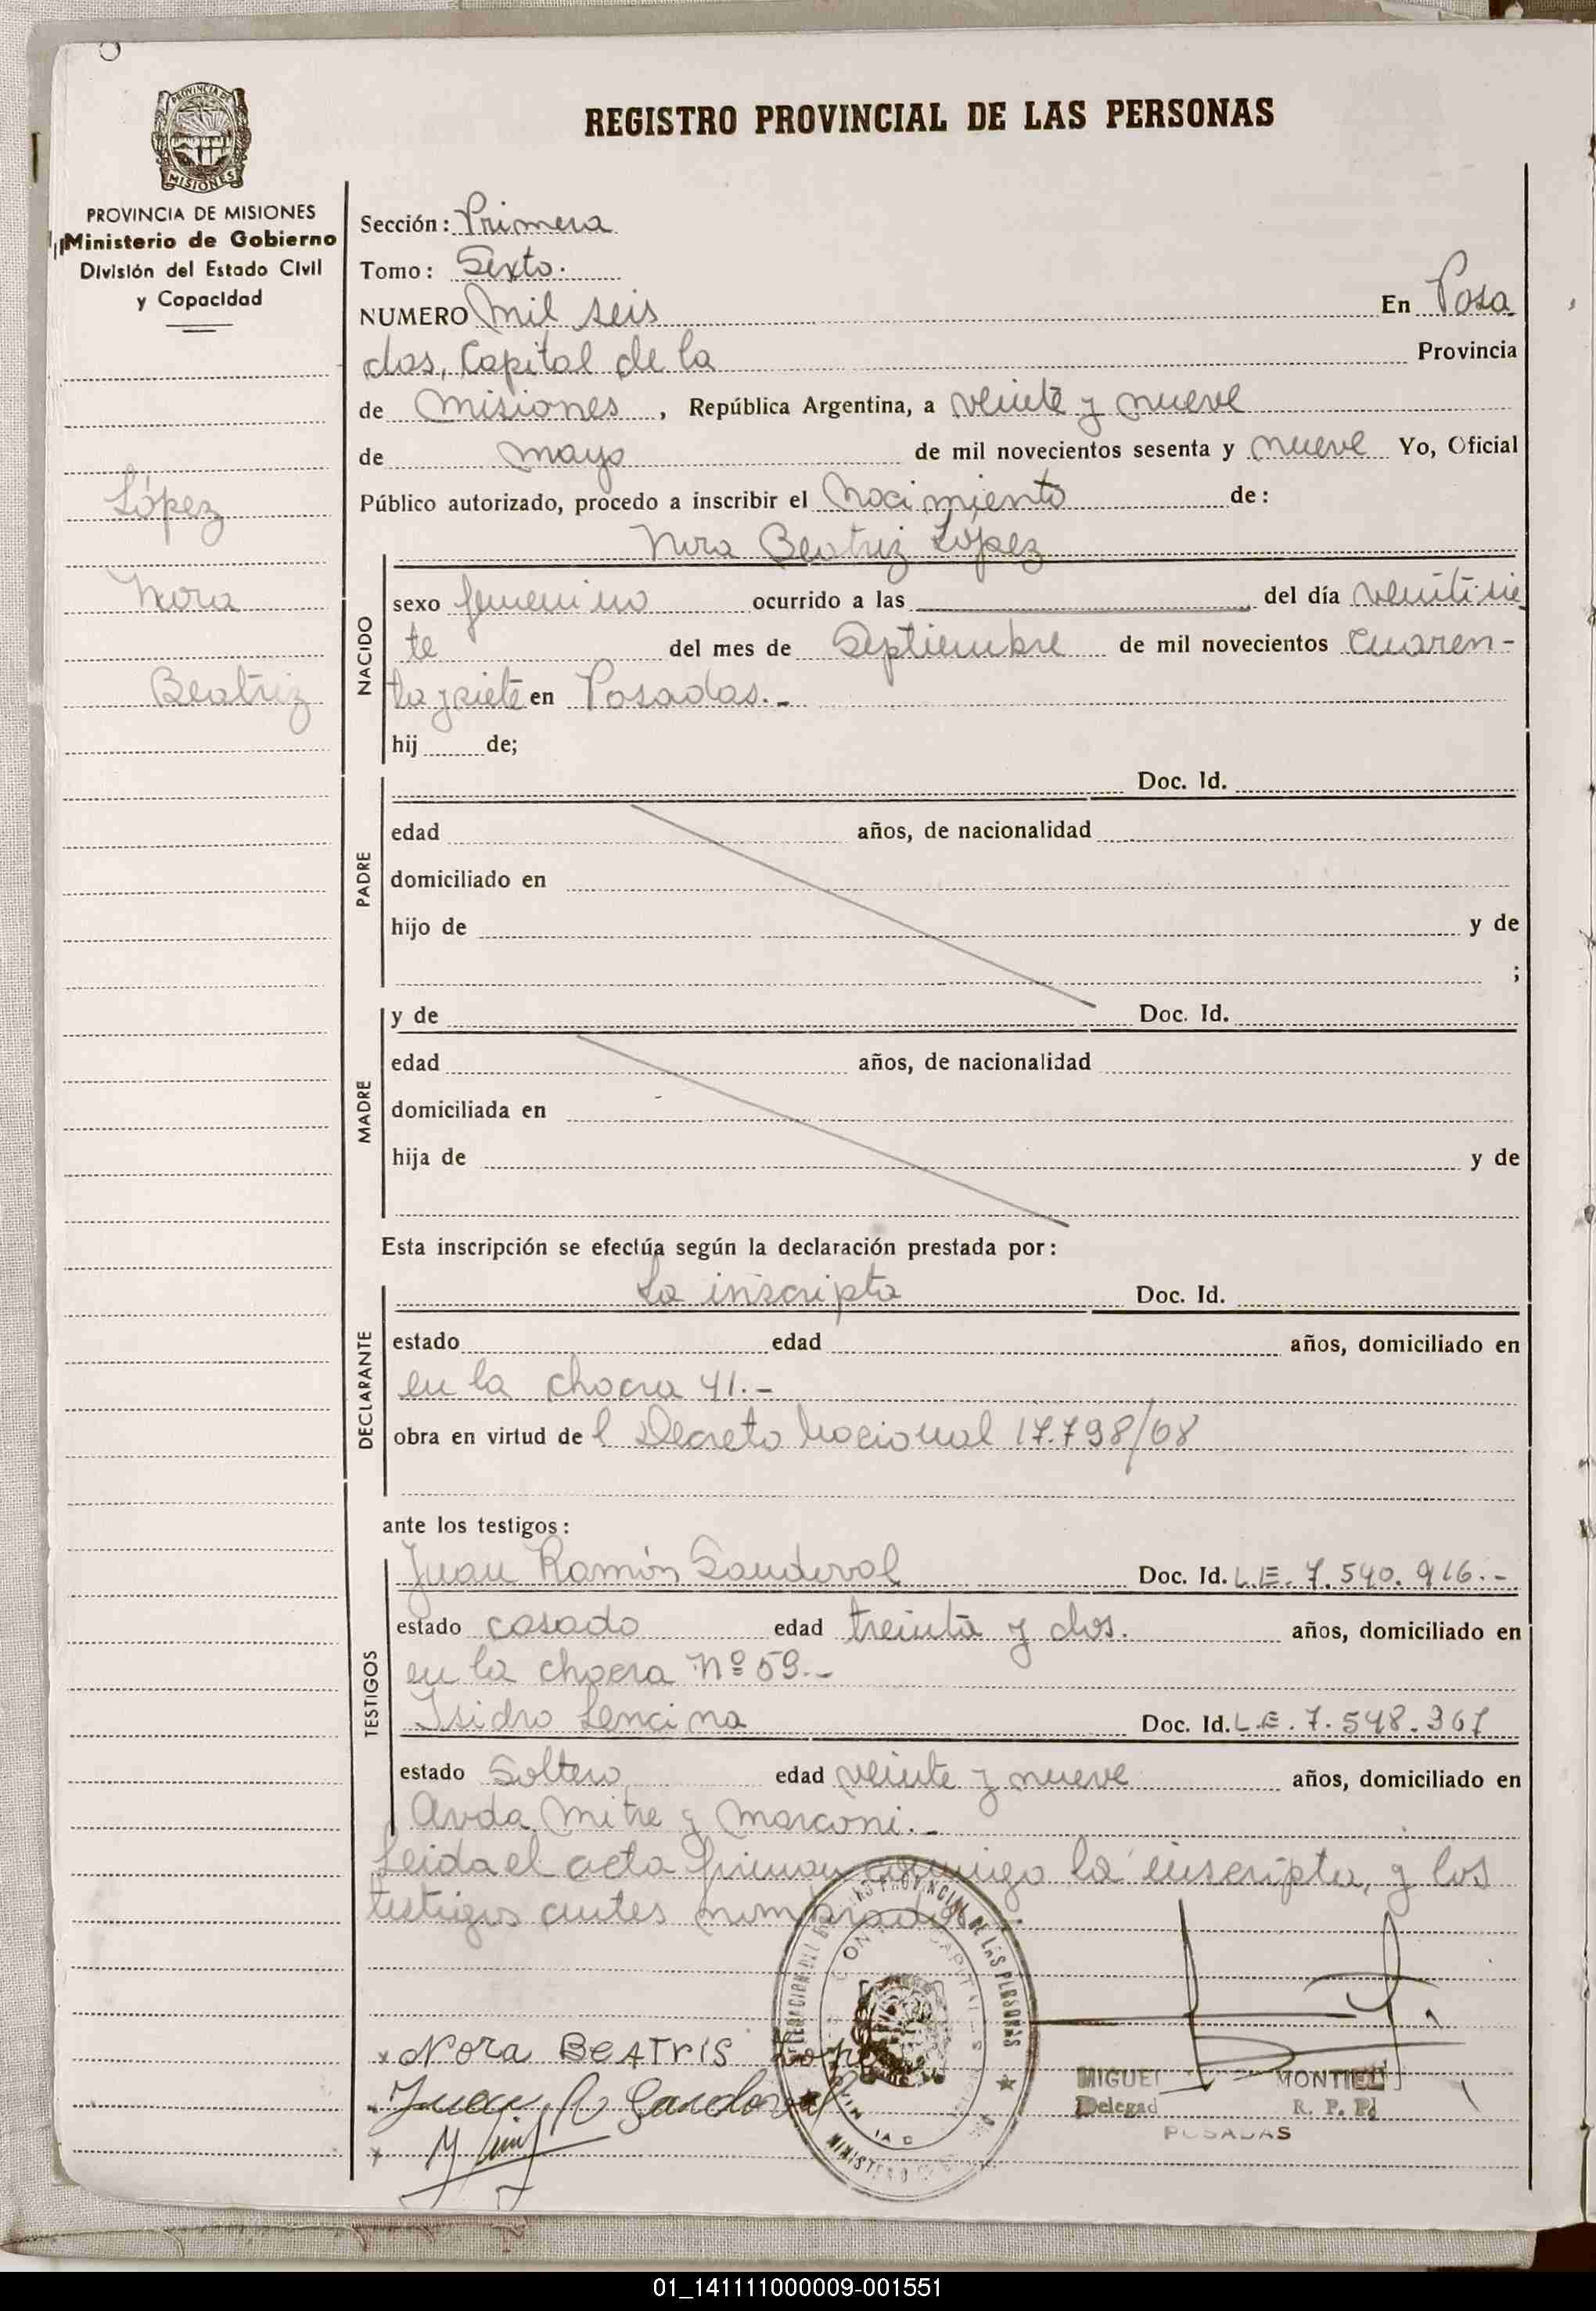 REGISTRO PROVINCIAL DE LAS PERSONAS
PROVINCIA DE
MISIONES
PROVINCIA DE MISIONES
Ministerio de Gobierno
División del Estado Civil
y Capacidad
López
Nora
Beatriz
Sección: Primera
Tomo: Sexto.
NUMERO mil seis En Posa
das, Capital de la Provincia
de Misiones, República Argentina, a veinte y nueve
de mayo de mil novecientos sesenta y nueve Yo, Oficial
Público autorizado, procedo a inscribir el Nacimiento de:
Nora Beatriz López
NACIDO
sexo femenino ocurrido a las del día veintisie
te del mes de Septiembre de mil novecientos cuaren-
ta y siete en Posadas.-
hij de;
PADRE
Doc. Id.
edad años, de nacionalidad
domiciliado en
hijo de y de
;
MADRE
y de Doc. Id.
edad años, de nacionalidad
domiciliada en
hija de y de
Esta inscripción se efectúa según la declaración prestada por:
DECLARANTE
La inscripta Doc. Id.
estado edad años, domiciliado en
en la chacra 41.-
obra en virtud de l Decreto Nacional 17.798/68
ante los testigos:
TESTIGOS
Juan Ramón Sandoval Doc. Id. L.E. 7.540.916.-
estado casado edad treinta y dos. años, domiciliado en
en la chacra Nº 59.-
Isidro Lencina Doc. Id. L.E. 7.548.367
estado Soltero edad veinte y nueve años, domiciliado en
Avda. Mitre y Marconi.-
Leida el acta firman conmigo la inscripta, y los
testigos antes nombrados.
Nora BEATris Lopez
Juan R Sandoval
PROVINCIAL DE LAS PERSONAS
MIGUEL MONTIEL
Delegad R. P. P.
POSADAS
01_141111000009-001551